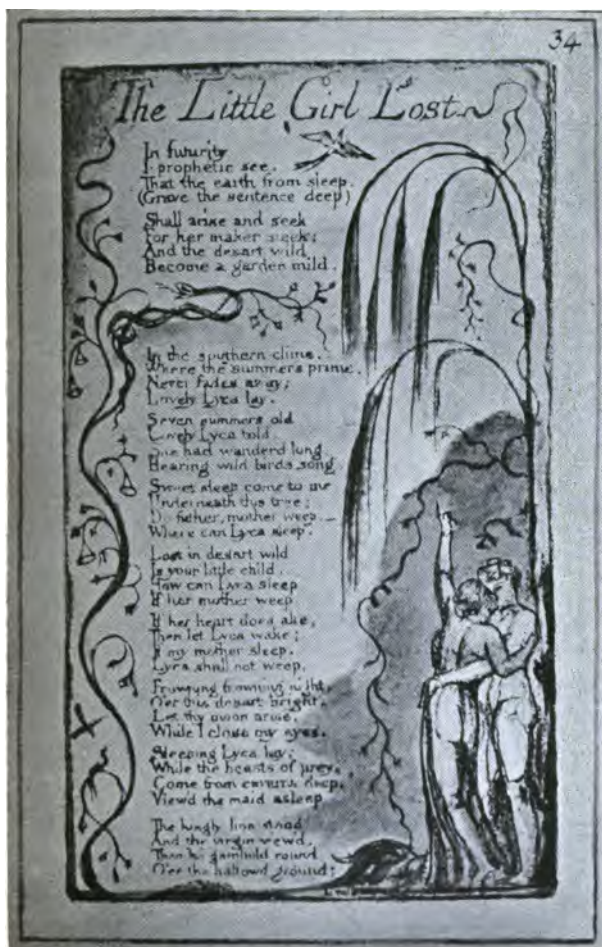 34
The Little Girl Lost
In futurity
I prophetic see,
That the earth from sleep,
(Grave the sentence deep)
Shall arise and seek
For her maker meek:
And the desart wild
Become a garden mild.
In the southern clime,
Where the summers prime,
Never fades away;
Lovely Lyca lay.
Seven summers old
Lovely Lyca told,
She had wanderd long,
Hearing wild birds song.
Sweet sleep come to me
Underneath this tree;
Do father, mother weep.—
Where can Lyca sleep.
Lost in desart wild
Is your little child.
How can Lyca sleep,
If her mother weep.
If her heart does ake,
Then let Lyca wake;
If my mother sleep,
Lyca shall not weep.
Frowning frowning night,
O'er this desart bright,
Let thy moon arise,
While I close my eyes.
Sleeping Lyca lay;
While the beasts of prey,
Come from caverns deep,
View'd the maid asleep
The kingly lion stood
And the virgin view'd,
Then he gambold round
O'er the hallowd ground: